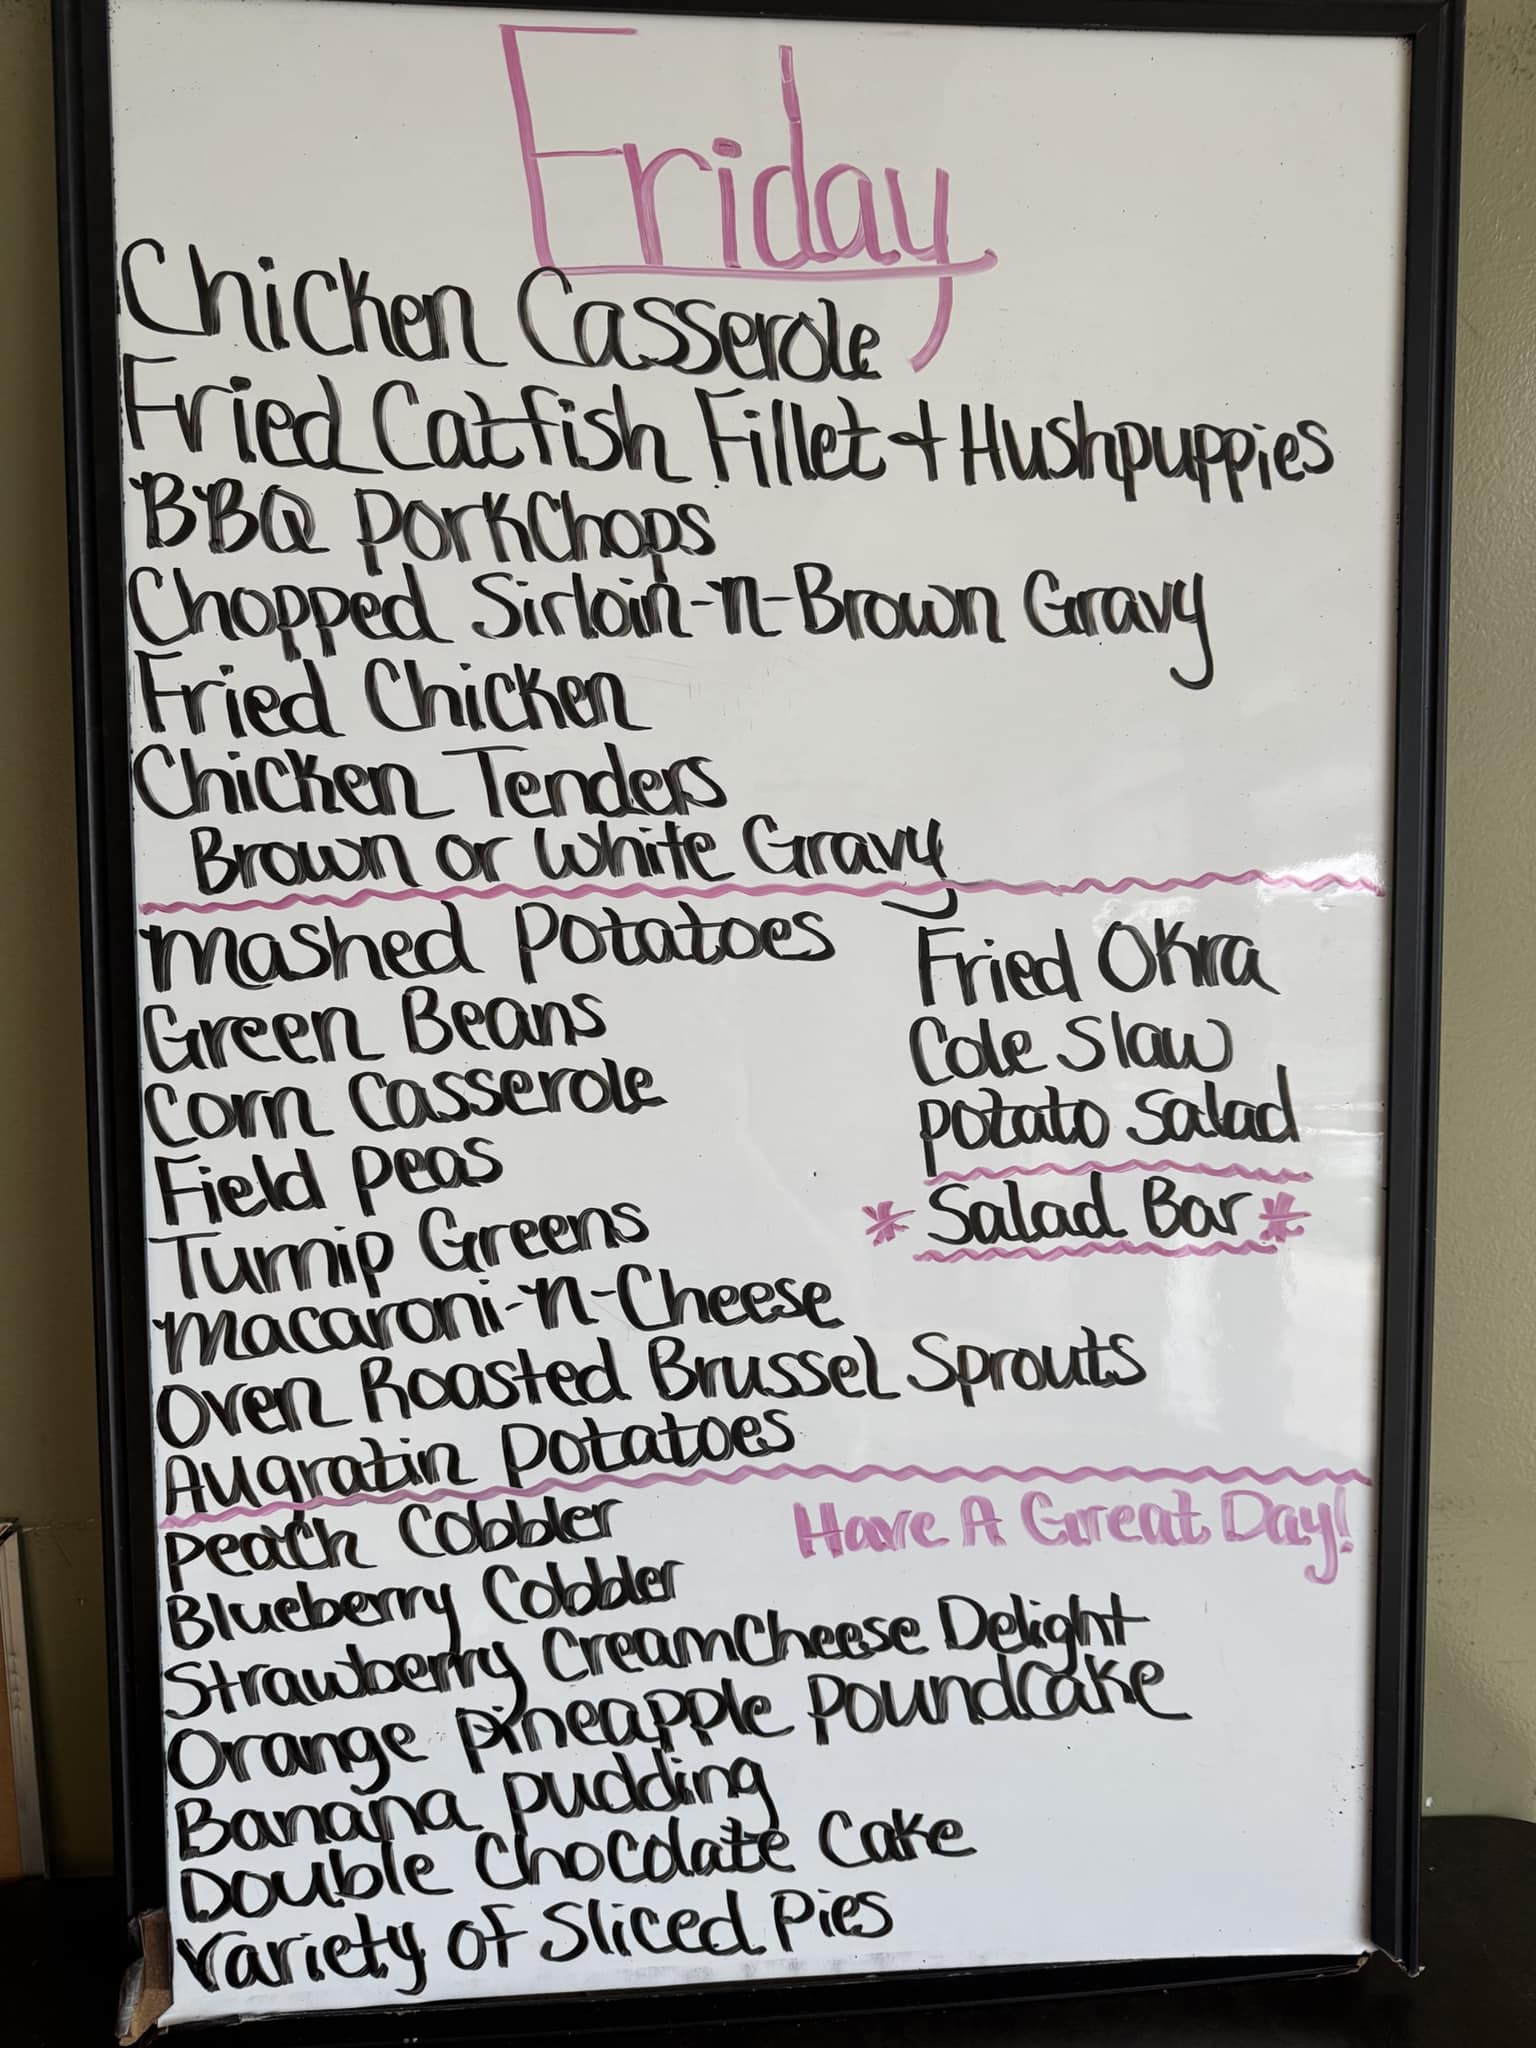 Friday
Chicken Casserole
Fried Catfish Fillet + Hushpuppies
BBQ PorkChops
Chopped Sirloin-n-Brown Gravy
Fried Chicken
Chicken Tenders
Brown or White Gravy
Mashed Potatoes
Green Beans
Corn Casserole
Field Peas
Turnip Greens
Macaroni-n-Cheese
Oven Roasted Brussel Sprouts
Augratin Potatoes
Fried Okra
Cole Slaw
Potato Salad
* Salad Bar *
Peach Cobbler
Blueberry Cobbler
Strawberry CreamCheese Delight
Orange Pineapple Poundcake
Banana Pudding
Double Chocolate Cake
Variety of Sliced Pies
Have A Great Day!